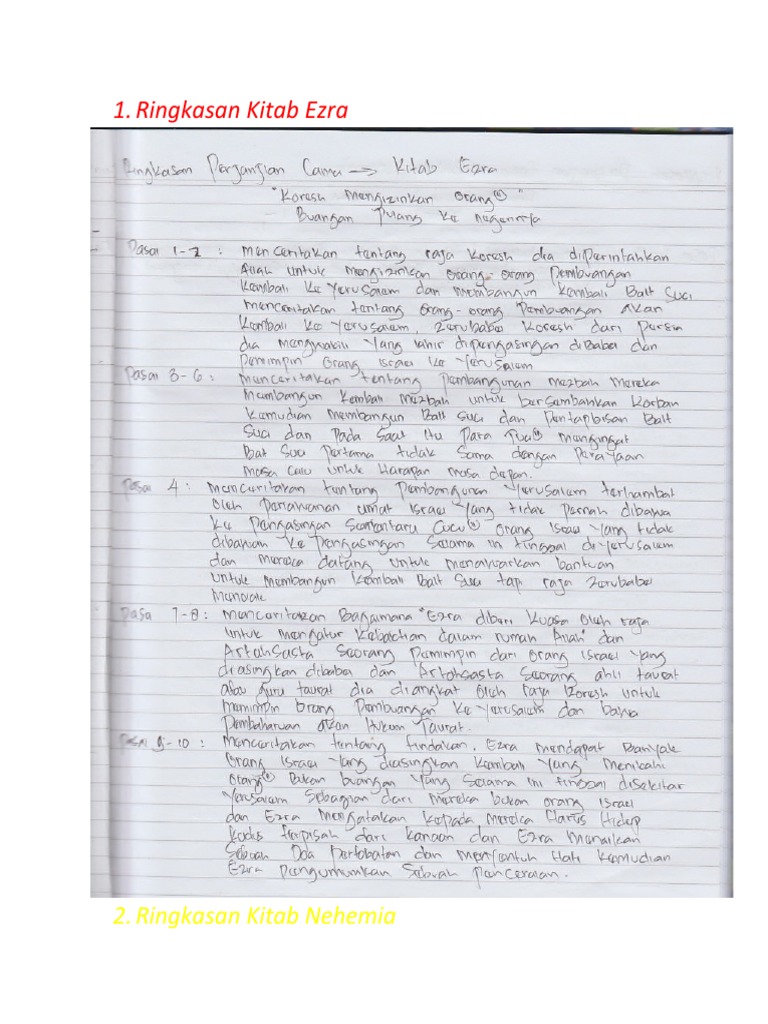 1. Ringkasan Kitab Ezra
Ringkasan Perjanjian Lama → Kitab Ezra
"Koresh Mengizinkan Orang② "
Buangan Pulang Ke Negerinya
Pasal 1-2 : Menceritakan tentang raja Koresh dia diperintahkan
Allah untuk mengizinkan orang-orang pembuangan
Kembali Ke Yerusalem dan membangun Kembali Bait Suci
Menceritakan tentang orang-orang Pembuangan akan
Kembali Ke Yerusalem, Zerubabel Koresh dari Persia
dia mengwakili yang lahir dipengasingan dibabel dan
Pemimpin Orang Israel Ke Yerusalem
Pasal 3-6 : Menceritakan tentang Pembangunan Mezbah Mereka
Membangun Kembali Mezbah untuk bersembahkan Korban
Kemudian Membangun Bait Suci dan Pentahbisan Bait
Suci dan Pada Saat Itu Para Tua② mengingat
Bait Suci Pertama tidak Sama dengan Perayaan
Masa Lalu untuk Harapan masa depan.
Pasal 4 : Menceritakan tentang Pembangunan Yerusalem terhambat
Oleh Perlawanan umat Israel Yang tidak Pernah dibawa
Ke Pengasingan Sementara Cucu② Orang Israel Yang tidak
dibawah Ke Pengasingan Selama ini tinggal di Yerusalem
dan mereka datang untuk menawarkan bantuan
Untuk Membangun Kembali Bait Suci tapi raja Zerubabel
Menolak
Pasal 7-8 : Menceritakan Bagaimana "Ezra diberi Kuasa Oleh raja
Untuk Mengatur Kebaktian dalam rumah Allah" dan
Artahsasta Seorang Pemimpin dari Orang Israel Yang
diasingkan dibabel dan Artahsasta Seorang ahli taurat
atau guru taurat dia diangkat Oleh raja Koresh untuk
memimpin Orang Pembuangan Ke Yerusalem dan bawa
Pembaharuan akan Hukum Taurat.
Pasal 9-10 : Menceritakan tentang tindakan, Ezra mendapat Banyak
Orang Israel Yang diasingkan Kembali Yang Menikahi
Orang② Bukan buangan Yang Selama ini tinggal disekitar
Yerusalem Sebagian dari Mereka bukan orang Israel
dan Ezra Mengatakan Kepada mereka Harus Hidup
Kudus terpisah dari Kanaan dan Ezra Menaikan
Sebuah Doa Pertobatan dan menyentuh Hati Kemudian
Ezra Pengumumkan Sebuah Perceraian.
2. Ringkasan Kitab Nehemia